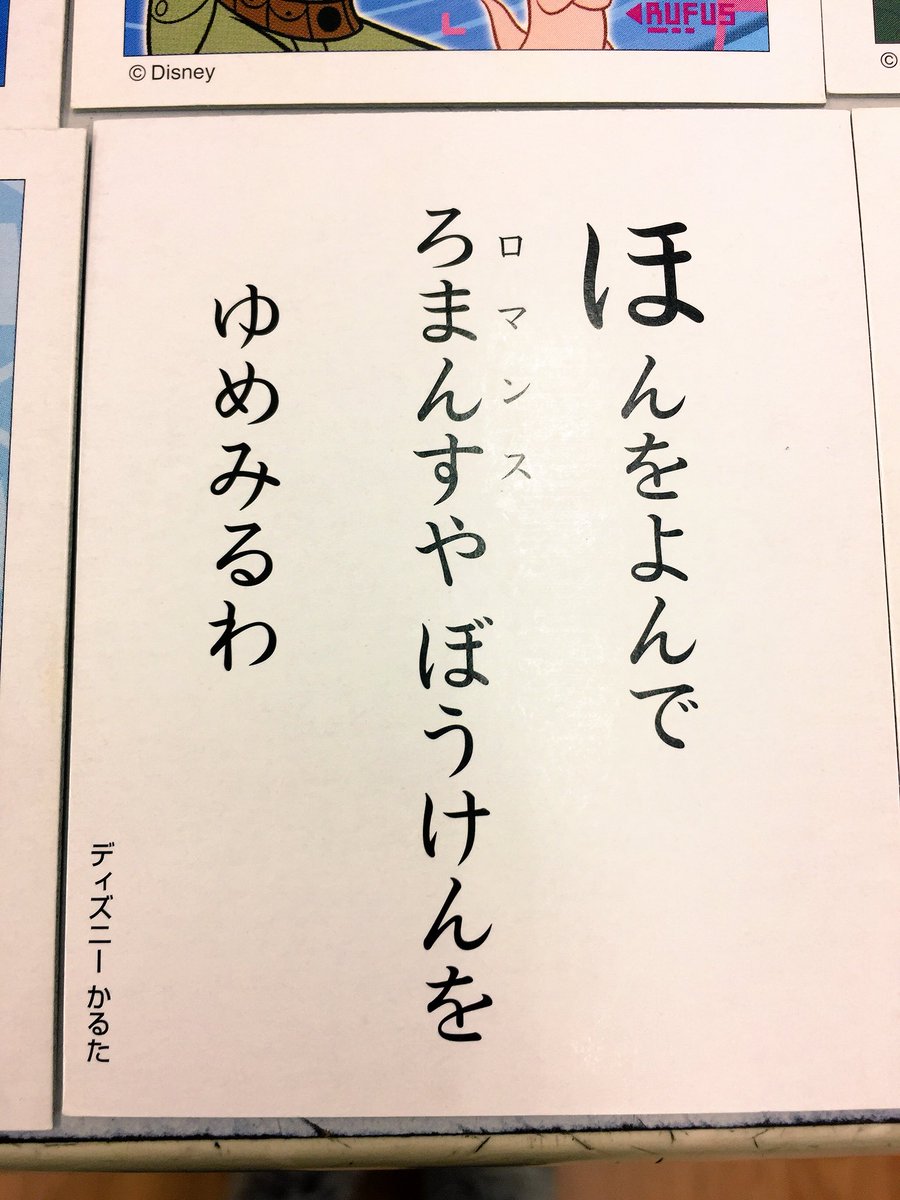 ◀RUFUS
L
© Disney
©
ほんをよんで
ロマンス
ろまんすや ぼうけんを
ゆめみるわ
ディズニー かるた